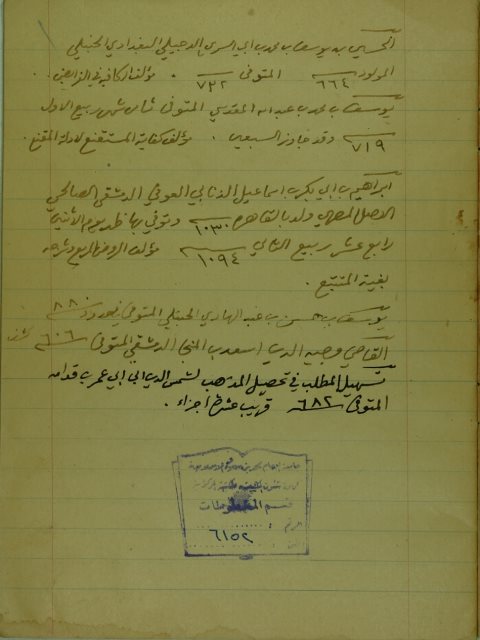 الحسين بن يوسف بن محمد بن أبي السري الدجيلي البغدادي الحنبلي
المولود ٦٦٤ المتوفى ٧٣٢ . مؤلف الكافية في الفرائض .
يوسف بن محمد بن عبد الله المقدسي المتوفى ثامن شهر ربيع الأول
٧١٩ وقد جاوز السبعين . مؤلف كفاية المستقنع لأدلة المقنع .
ابراهيم بن أبي بكر بن اسماعيل الذنابي العوفي الدمشقي الصالحي
الأصل المصري ولد بالقاهرة ١٠٣٠ وتوفي بها ظهر يوم الأثنين
رابع عشر ربيع الثاني ١٠٩٤ مؤلف الروض المربع
بغية المتتبع .
يوسف بن حسن بن عبد الهادي الحنبلي المتوفى ٨٨٠
القاضي وجيه الدين اسعد بن المنجا الدمشقي المتوفى ٦٠٦
تسهيل المطلب في تحصيل المذهب لشمس الدين ابن أبي عمر بن قدامه
المتوفى ٦٨٢ قريب عشرة أجزاء .
جامعة الإمام محمد بن سعود الإسلامية
قسم المخطوطات
الرقم :
٦١٥٢